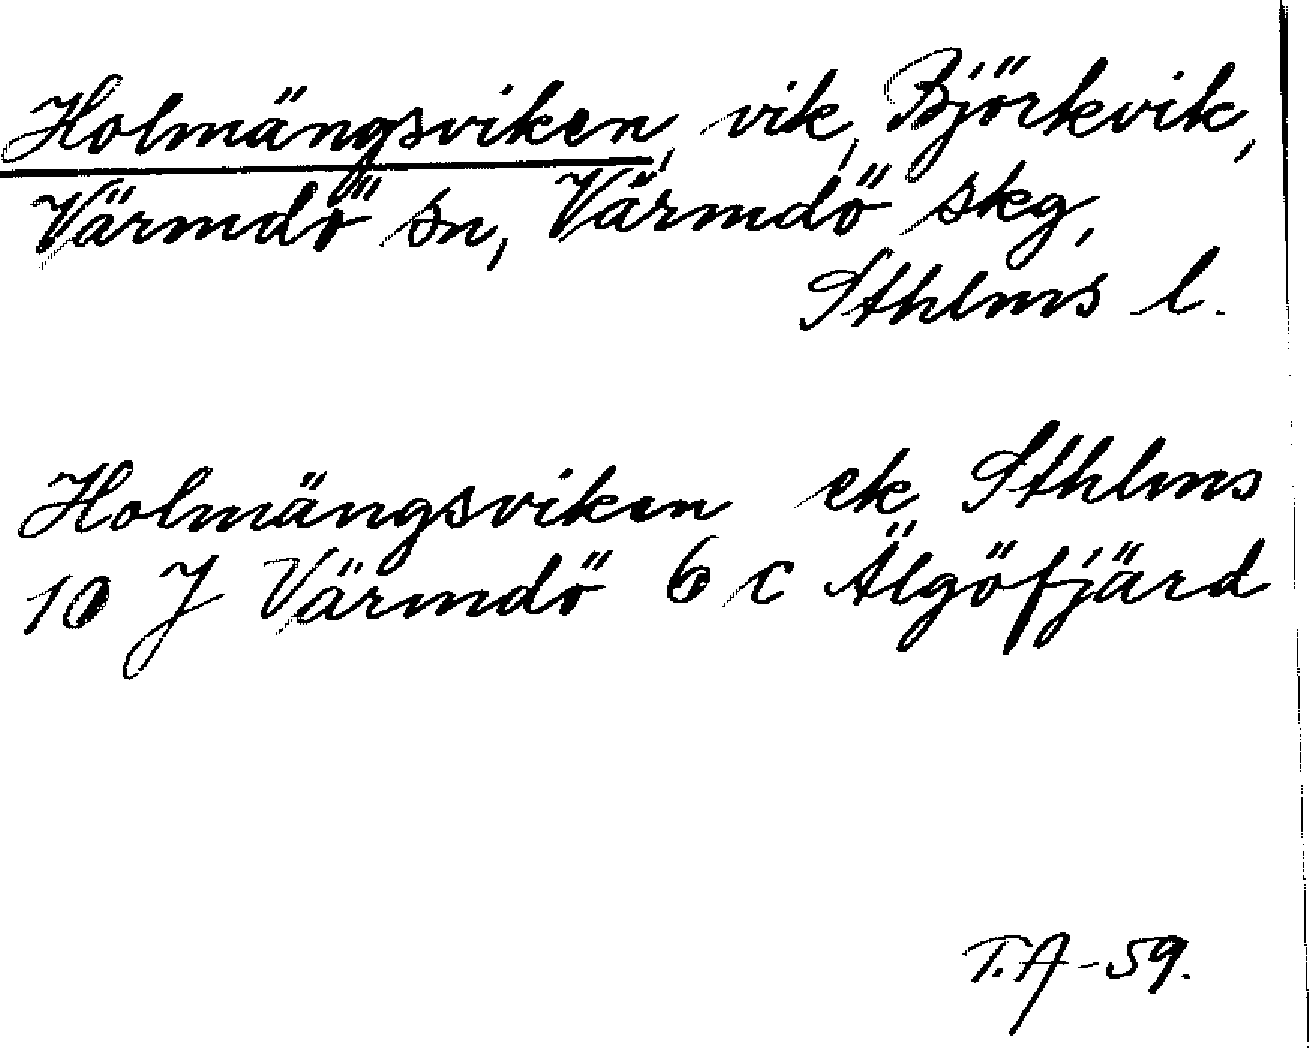 Holmängsviken, vik, Björkvik,
Värmdö sn, Värmdö skg,
Sthlms l.
Holmängsviken ek Sthlms
10 J Värmdö 6 c Älgöfjärd
T.A-59.